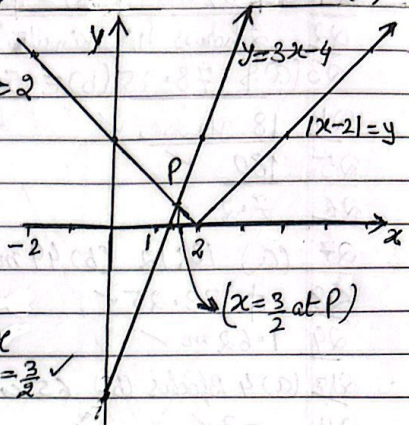 y
y=3x-4
=2
|x-2|=y
P
-2
1
2
x
(x=3/2 at P)
x
=3/2 ✓